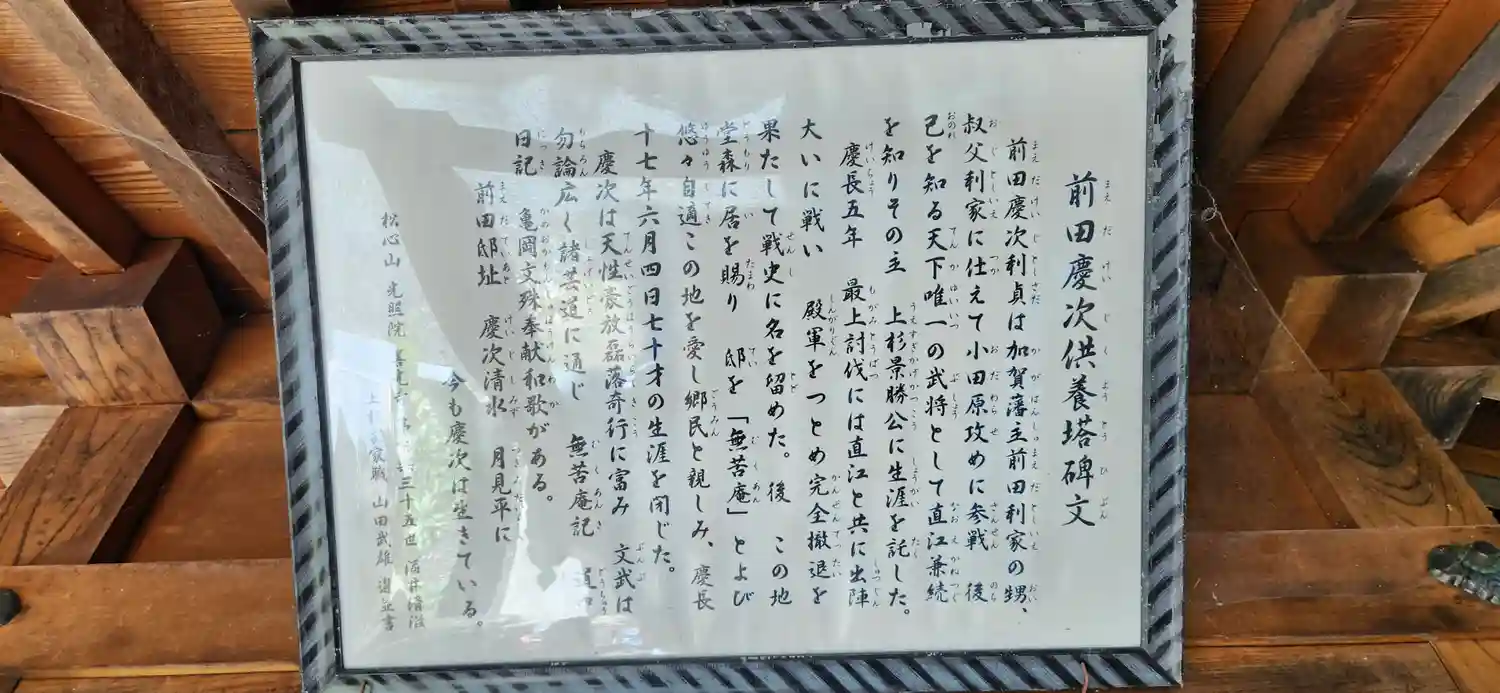 前田慶次供養塔碑文
前田慶次利貞は加賀藩主前田利家の甥、
叔父利家に仕えて小田原攻めに参戦 後
己を知る天下唯一の武将として直江兼続
を知りその主 上杉景勝公に生涯を託した。
慶長五年 最上討伐には直江と共に出陣
大いに戦い 殿軍をつとめ完全撤退を
果たして戦史に名を留めた。後 この地
堂森に居を賜り 邸を「無苦庵」とよび
悠々自適この地を愛し郷民と親しみ、慶長
十七年六月四日七十才の生涯を閉じた。
慶次は天性豪放磊落奇行に富み 文武は
勿論広く諸芸道に通じ 無苦庵記 道中
日記 亀岡文殊奉献和歌がある。
前田邸址 慶次清水 月見平に
今も慶次は生きている。
松心山 光照院 善光寺 三十五世 酒井清滋
上杉家家職 山田武雄 謹並書